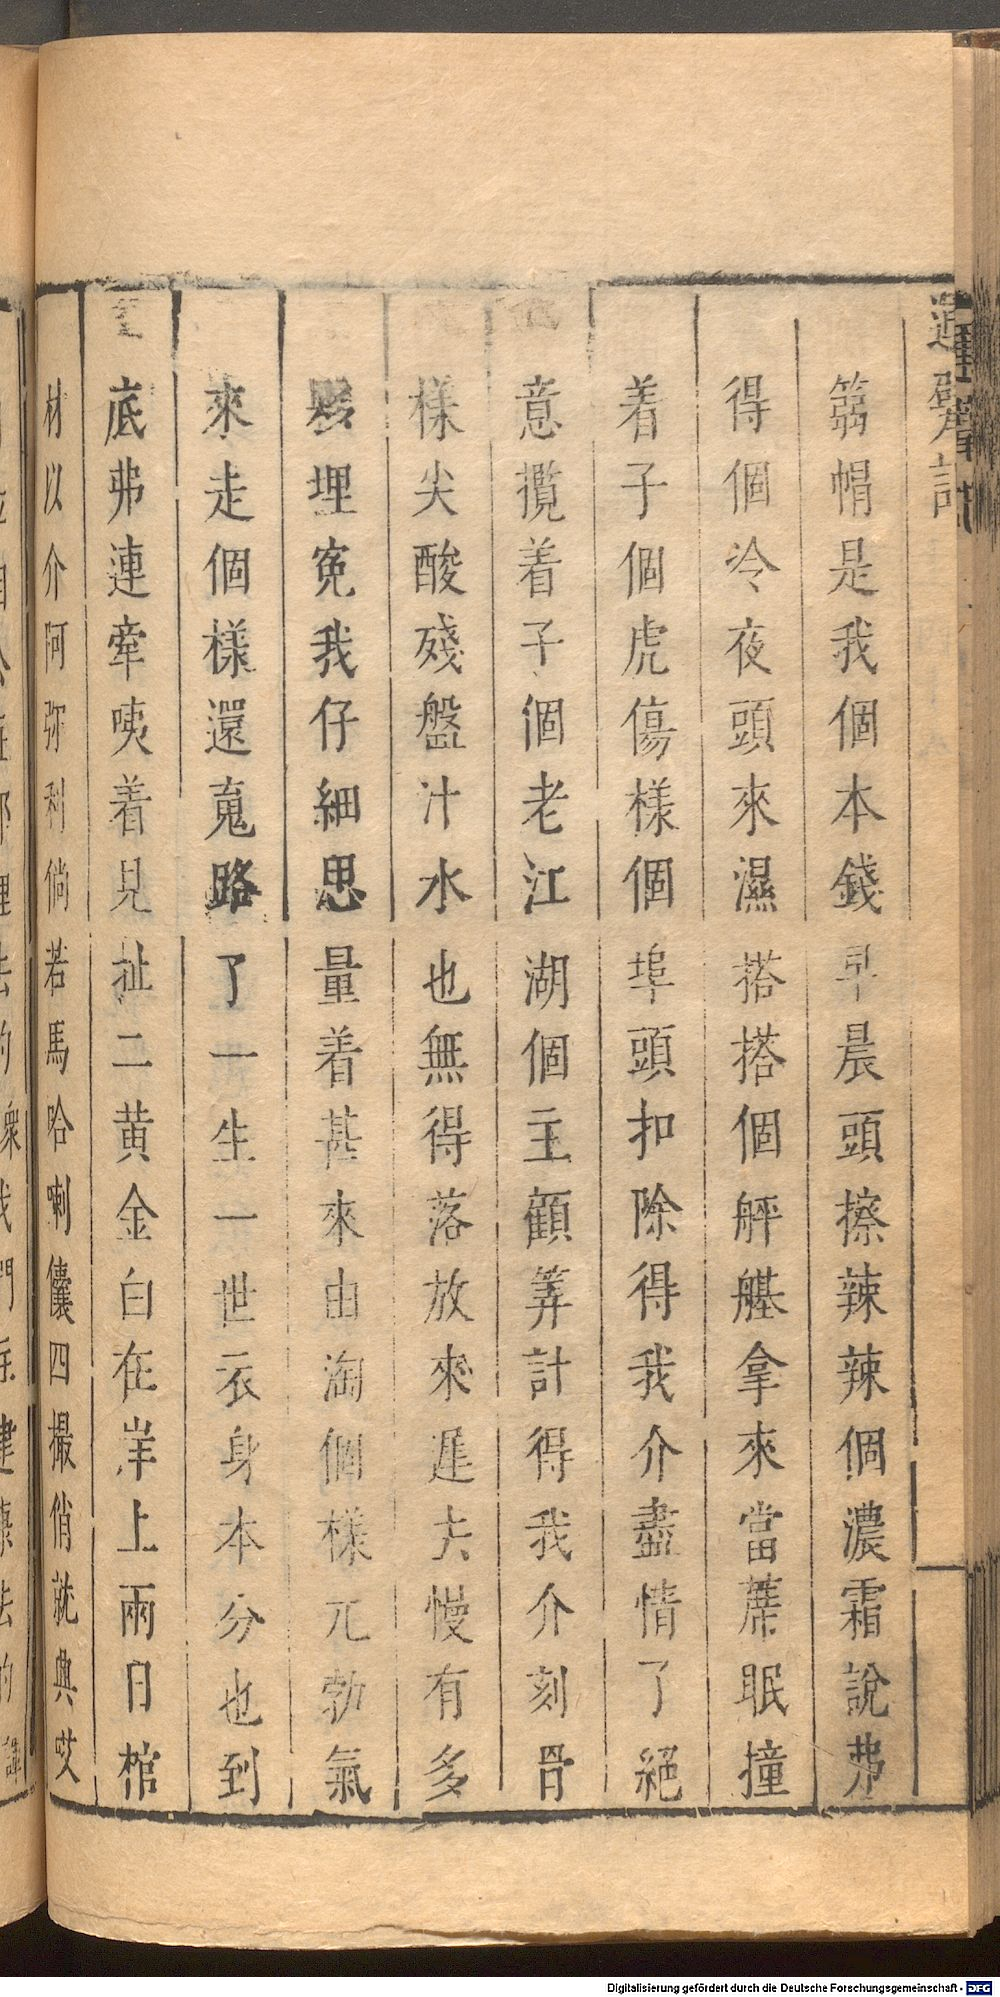 箬帽是我個本錢早晨頭擦辣辣個濃霜說弗
得個冷夜頭來濕搭搭個艀艍拿來當蓆眠撞
着子個虎傷樣個埠頭扣除得我介盡情了絕
意攬着子個老江湖個主顧筭計得我介刻骨
樣尖酸殘盤汁水也無得落放來遲去慢有多
埋寃我仔細思量着甚來由淘個樣兀勃氣
來走個樣還蒐路了一生一世衣身本分也到
底弗連牽咦着見扯二黃金白在洋上兩日棺
材以介阿弥利倘若馬哈喇儾四撮俏就典哎
Digitalisierung gefördert durch die Deutsche Forschungsgemeinschaft - DFG